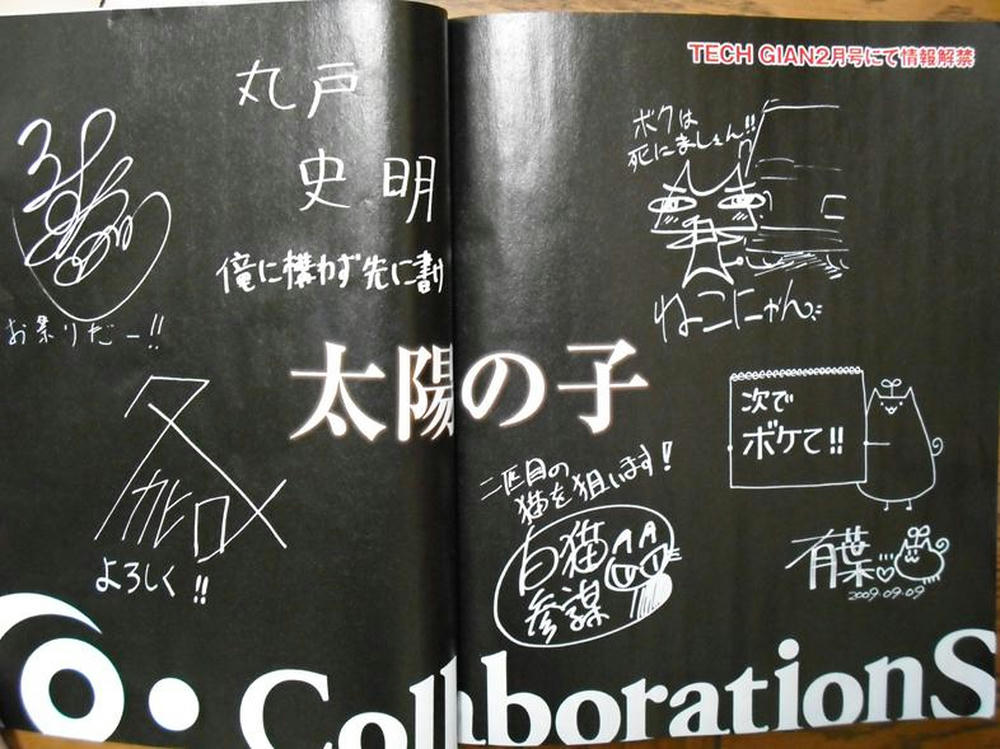 TECH GIAN2月号にて情報解禁
丸戸
史明
俺に構わず先に書け
お祭りだー!!
ボクは
死にましぇん!!
ねこにゃん
太陽の子
カヒロ
よろしく!!
二匹目の
猫を狙います!
白猫
参謀
次で
ボケて!!
有葉
2009.09.09
CollaborationS